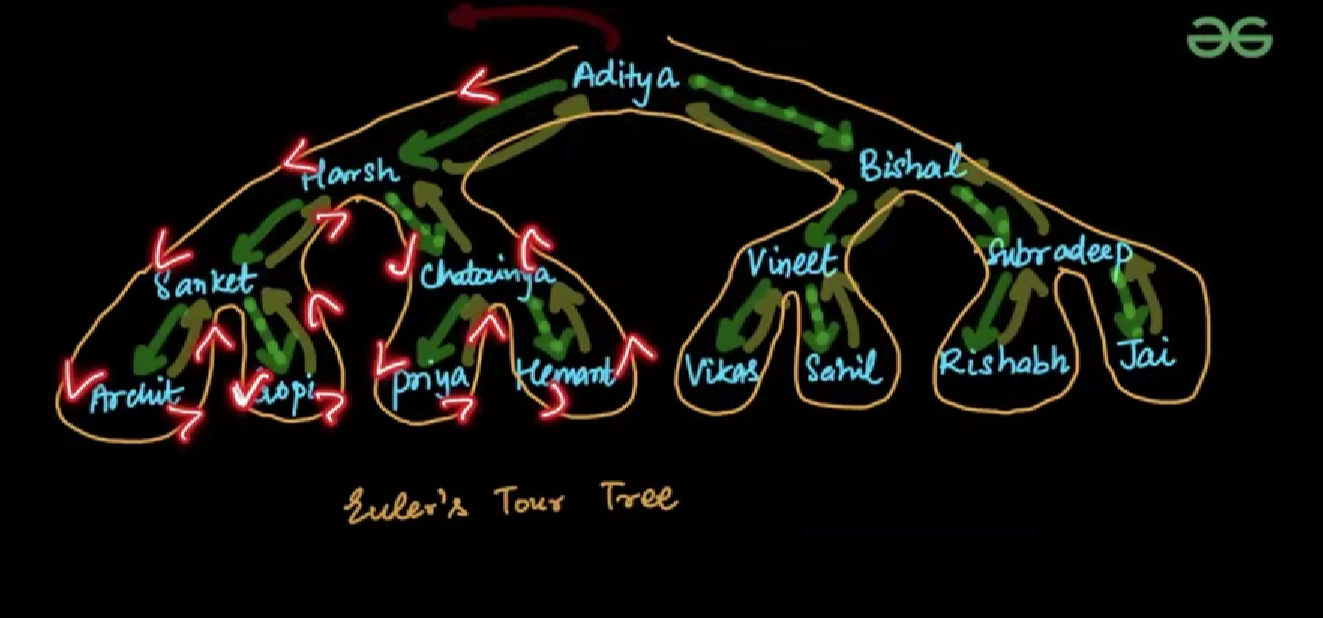 Aditya
Harsh Bishal
Sanket Chatainya Vineet Subradeep
Archit Gopi Priya Hemant Vikas Sahil Rishabh Jai
Euler's Tour Tree